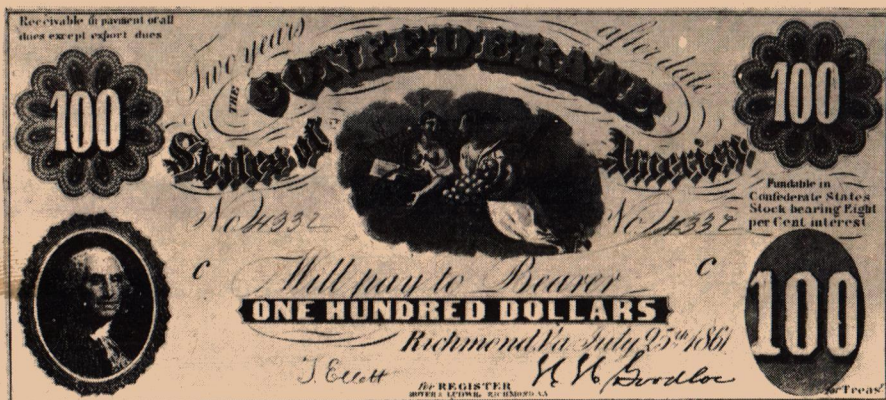 Receivable in payment of all
dues except export dues
Two years after date
THE CONFEDERATE
100 100
States of America
Fundable in
Confederate States
Stock bearing Eight
per Cent interest
No 4332 No 4332
C C
Will pay to Bearer
ONE HUNDRED DOLLARS
100
Richmond, Va July 25th 1861
J. Ellett
for REGISTER
for Treasr
HOYER & LUDWIG, RICHMOND, VA